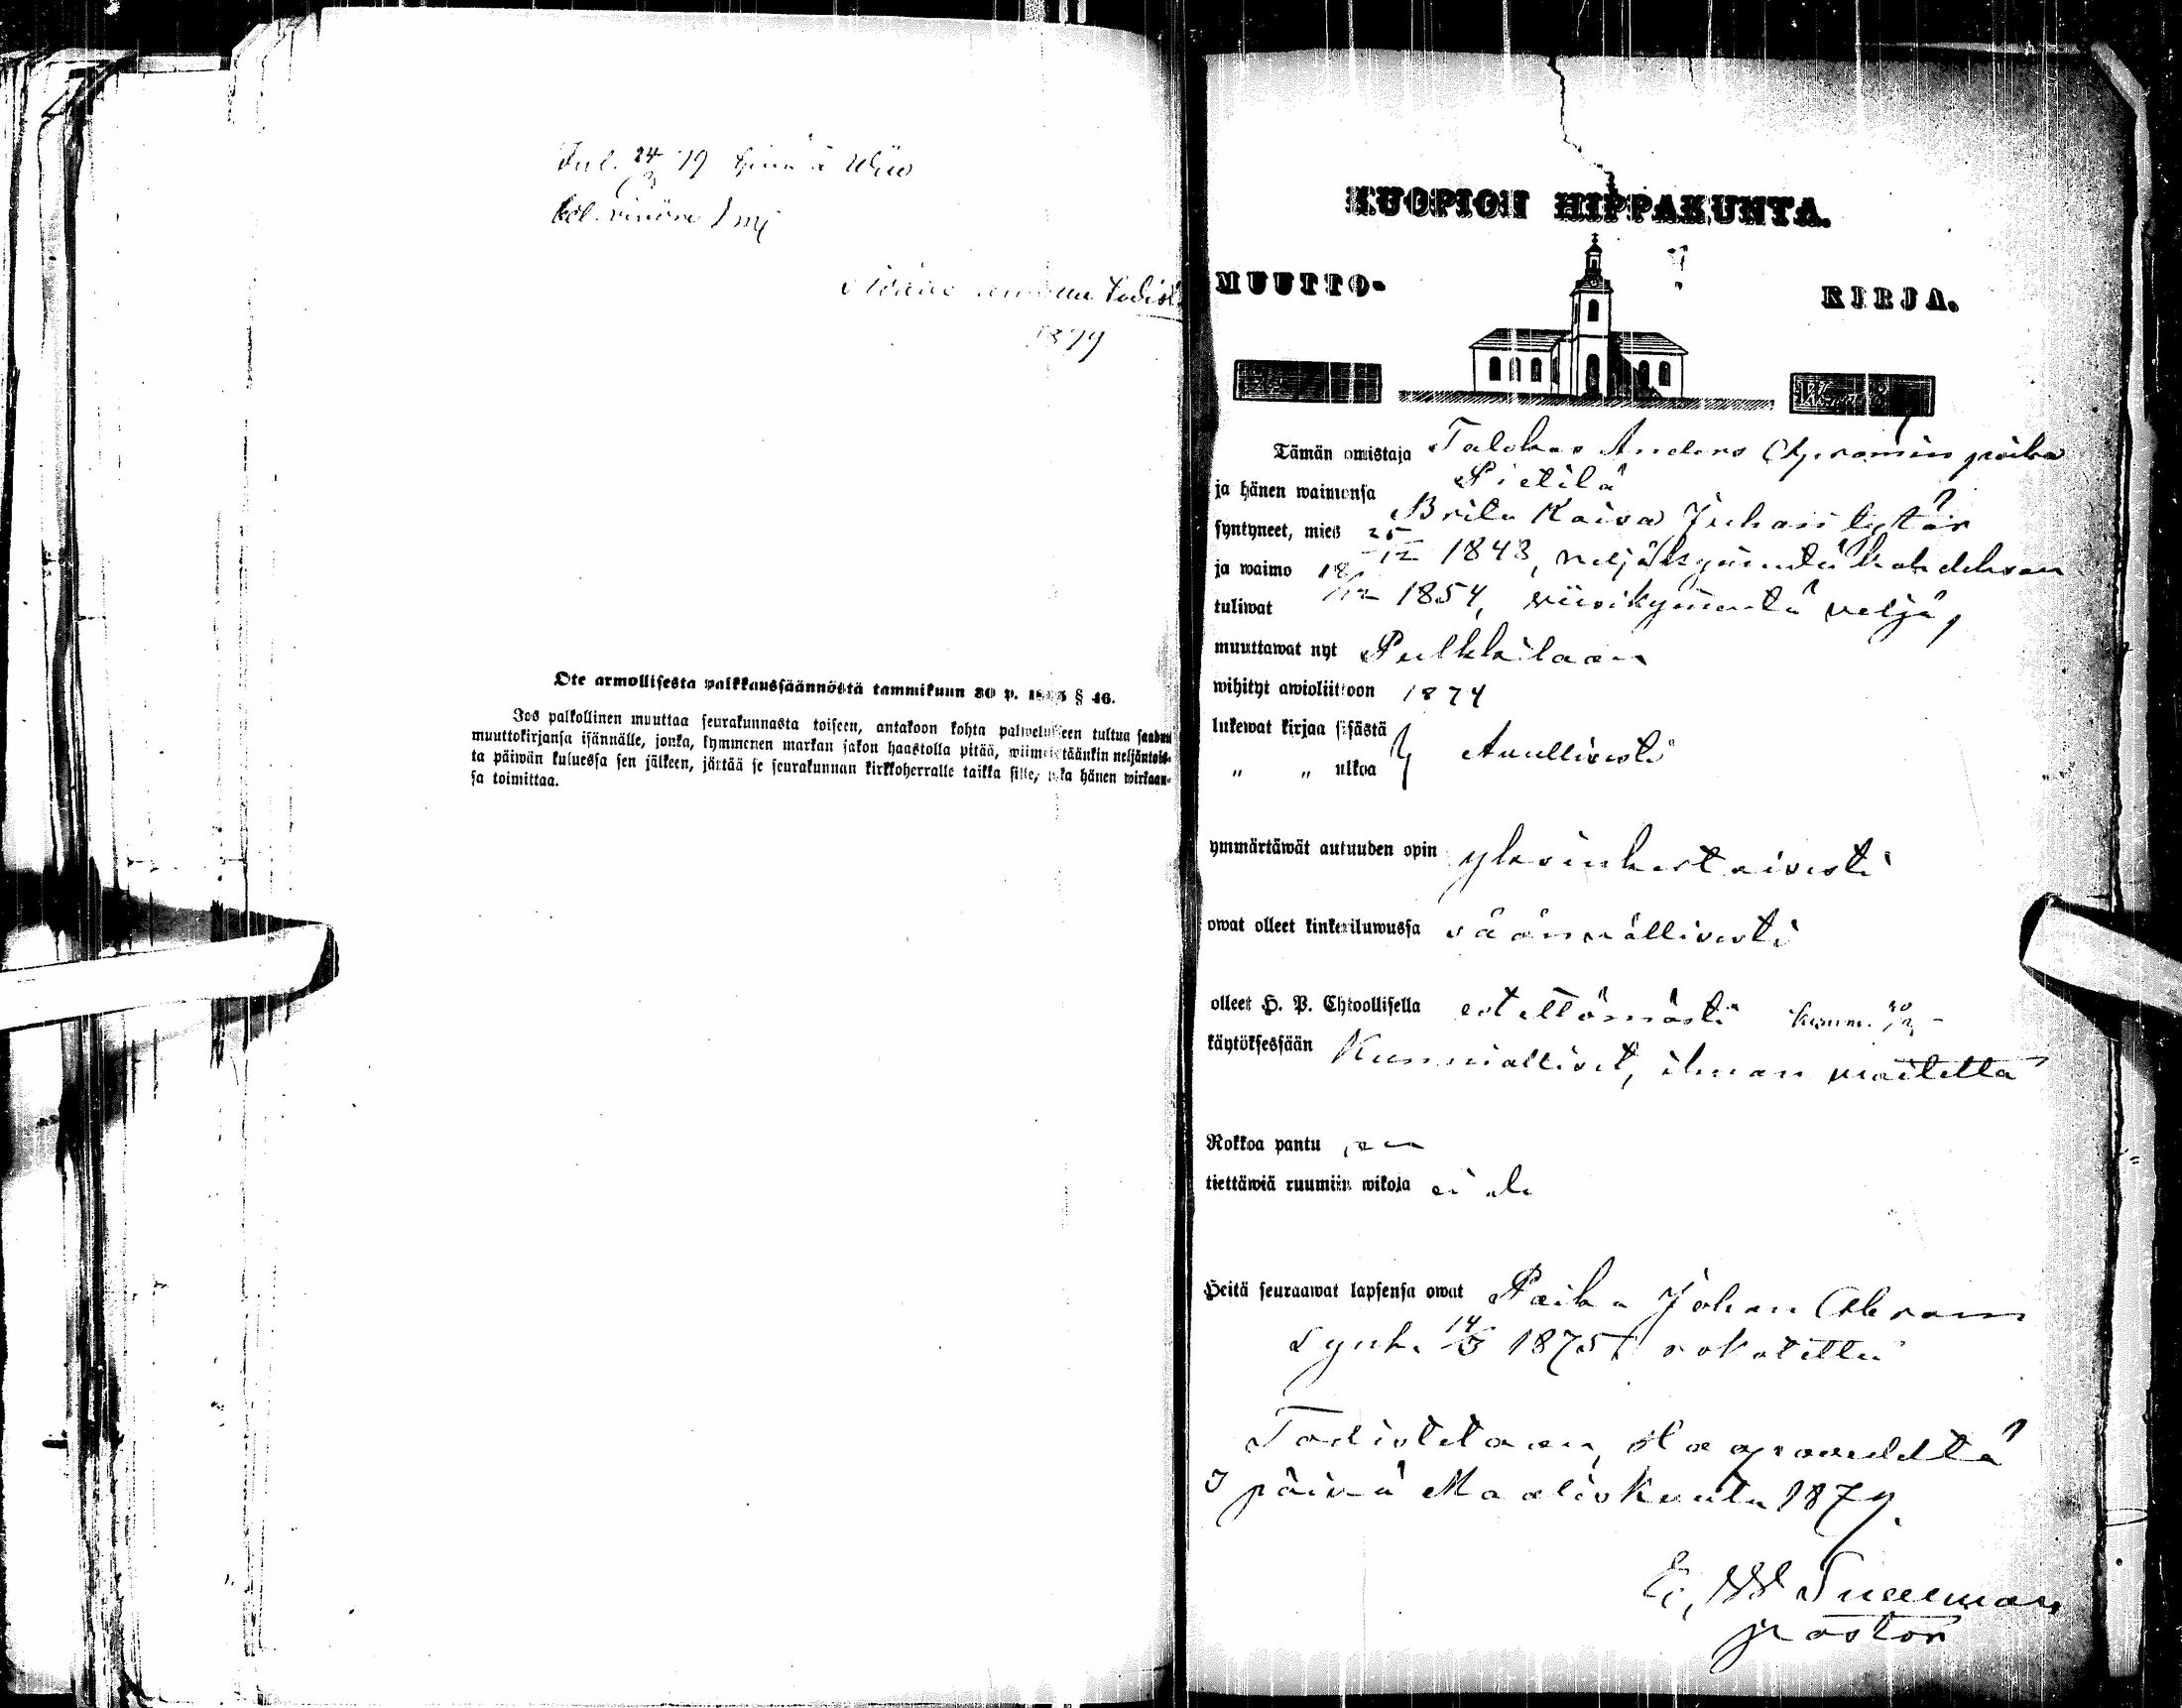 Inl. 24/3 79
1879
Ote armollisesta palkkaussäännöstä tammikuun 30 p. § 46.
Jos palkollinen muuttaa seurakunnasta toiseen, antakoon kohta palwelukseen tultua saadun
muuttokirjansa isännälle, jonka, kymmenen markan sakon haastolla pitää, wiimeistäänkin neljäntois-
ta päiwän kuluessa sen jälkeen, jättää se seurakunnan kirkkoherralle taikka sille, joka hänen wirkaan-
sa toimittaa.
KUOPION HIPPAKUNTA.
MUUTTO- KIRJA.
Tämän omistaja Talokas Anders poika
Pietilä
ja hänen waimonsa Brita Kaisa Juhan tytär
syntyneet, mies 25/12 1848, neljäkymmentä kahdeksan
ja waimo 18/12 1854, wiisikymmentä neljä,
tuliwat
muuttawat nyt Pulkkilaan
wihityt awioliittoon 1874
lukewat kirjaa sisästä } Awullisesti
„ „ ulkoa
ymmärtäwät autuuden opin yksinkertaisesti
owat olleet kinkeriluwussa säännöllisesti
olleet H. P. Ehtoollisella estettömästi
käytöksessään Kunnialliset, ilman moitetta
Rokkoa pantu on
tiettäwiä ruumiin wikoja ei ole
Heitä seuraawat lapsensa owat Poika Johan Abram
synt. 1875 rokotettu
Todistetaan,
päiwä Maaliskuuta 1879.
pastor